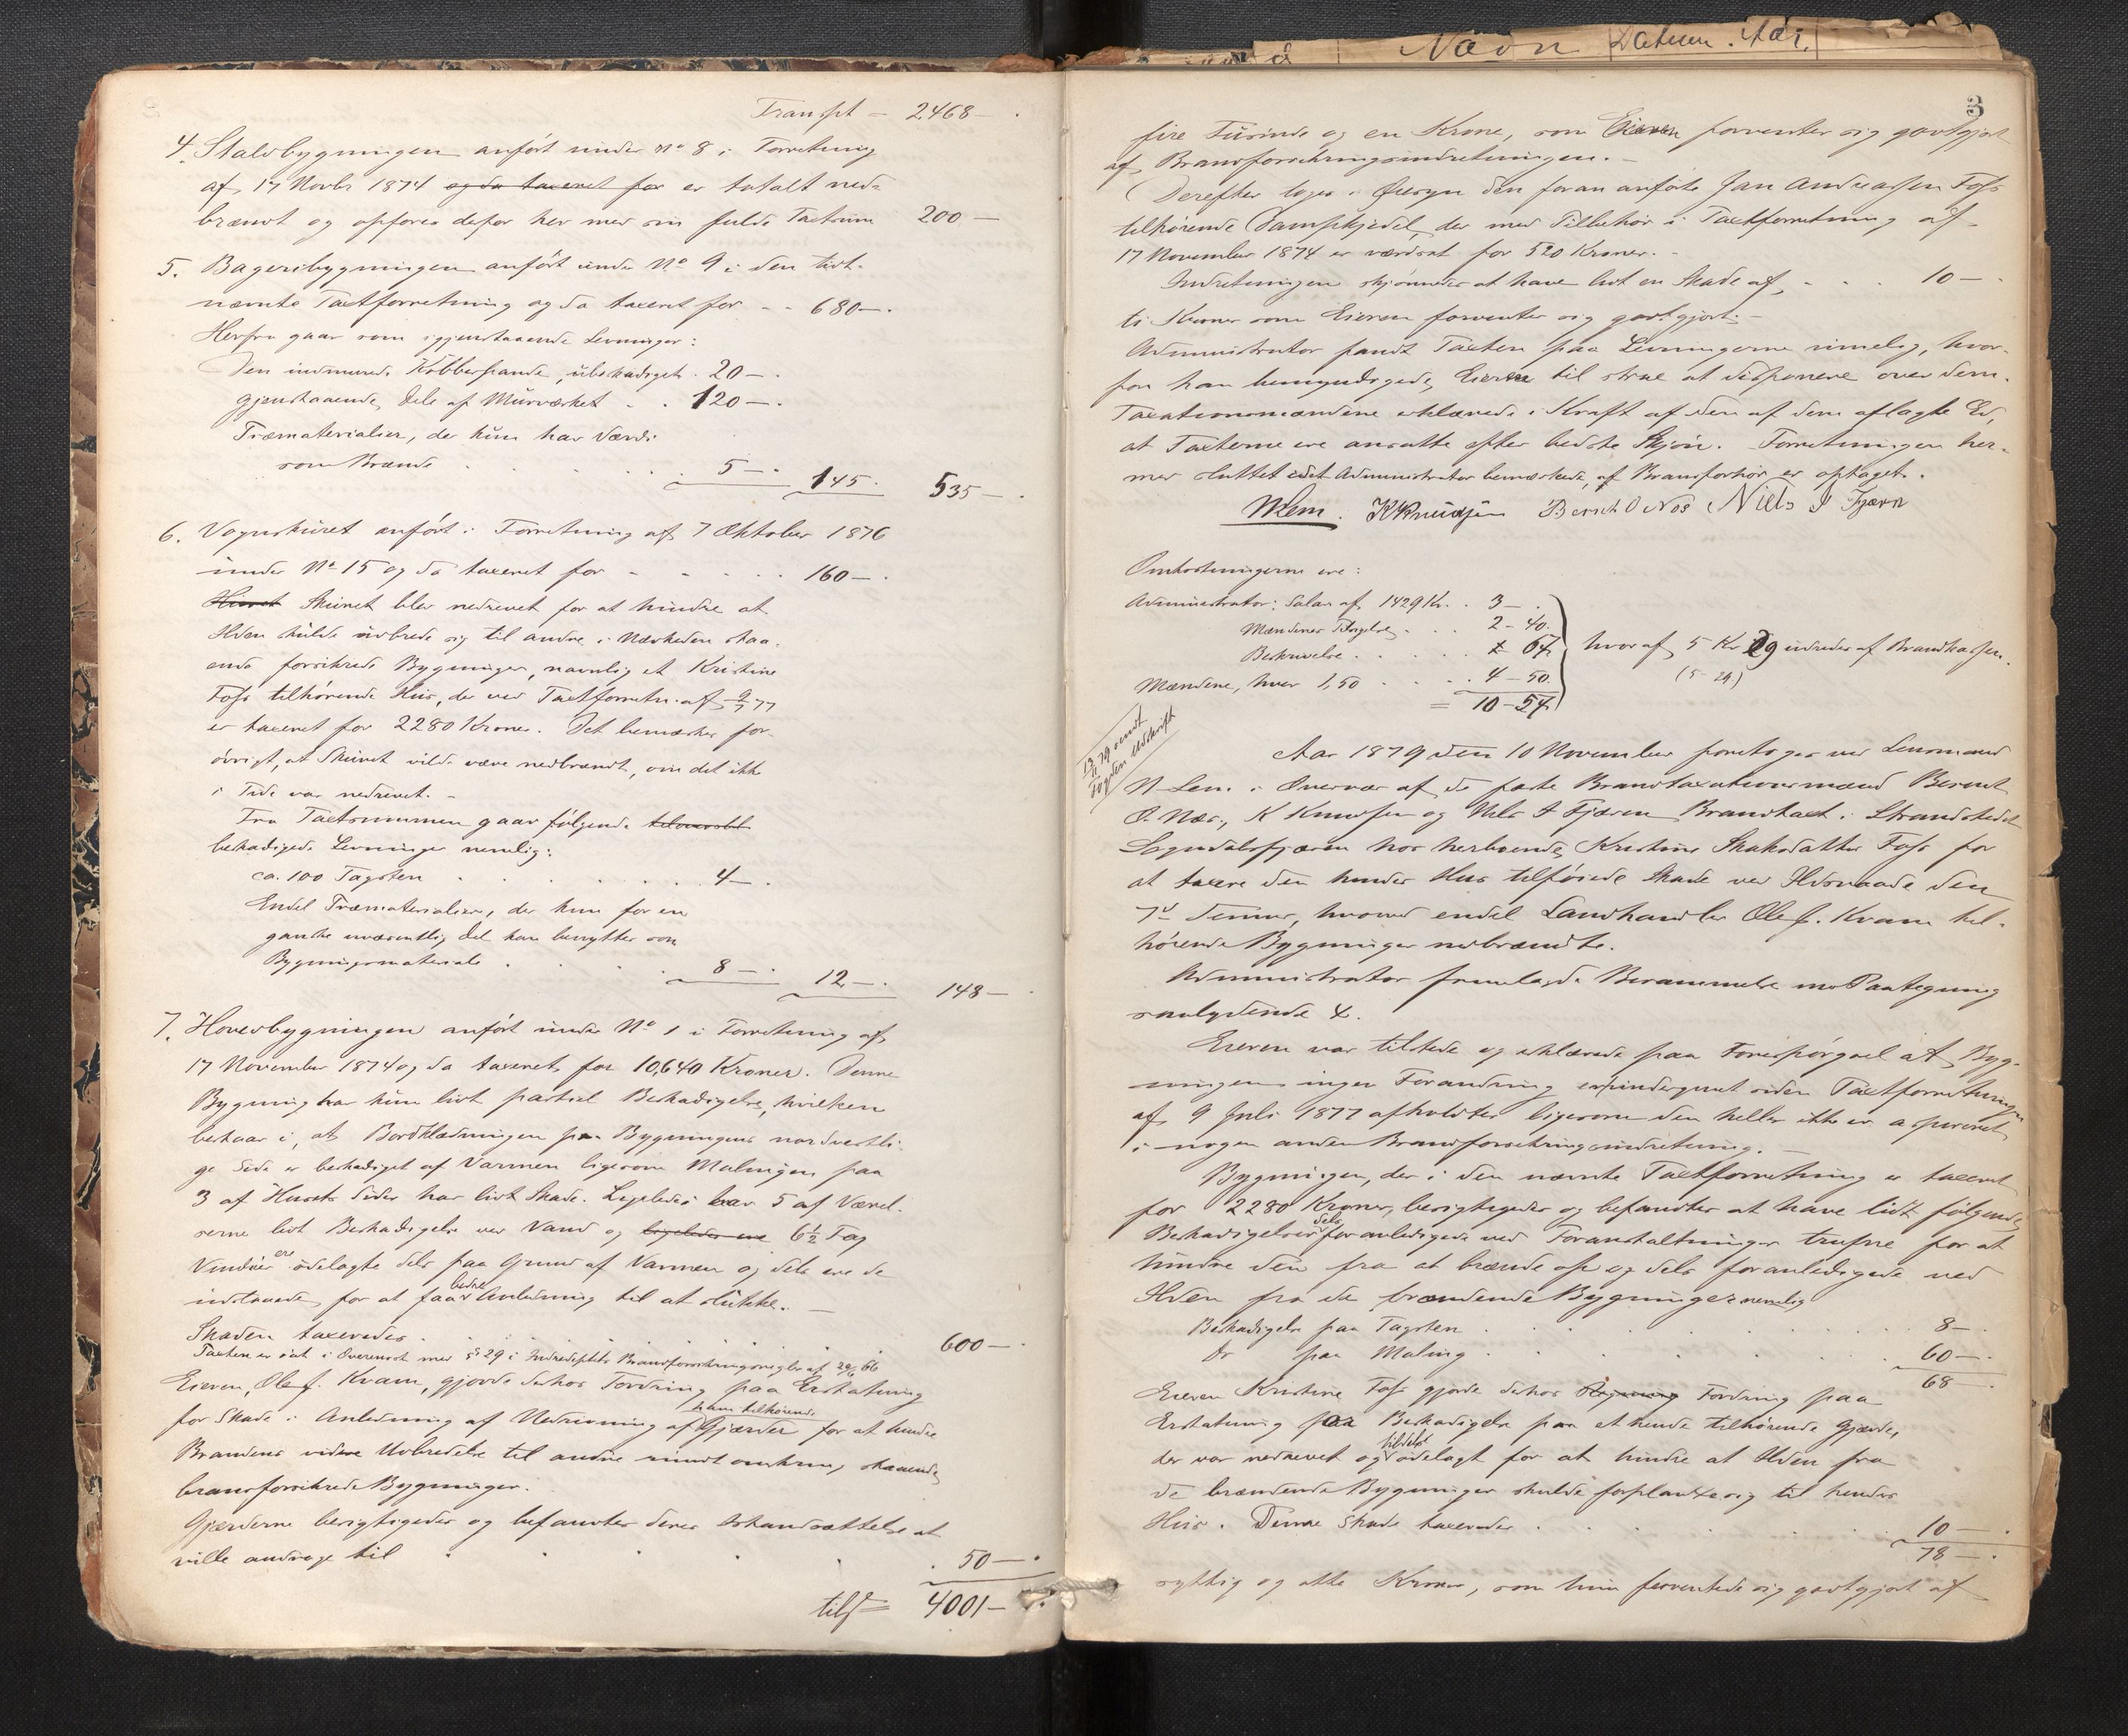 Transpt – 2468 –
4. Staldbygningen anført under No 8 i Forretning
af 17 Novbr 1874 og da taxeret for er totalt ned-
brændt og opføres derfor her med sin fulde Taxtsum 200 –
5. Bageribygningen anført under No 9 i den tidt-
nævnte Taxtforretning og da taxeret for – – 680 –.
Herfra gaar som igjenstaaende Levninger:
Den indmurede Kobberpande, ubeskadiget . 20 –.
gjenstaaende Dele af Murværket . . 120 –.
Træmaterialier, der kun har Værdi
som Brænde . . . . . 5 –. 145. 535 –.
6. Vognskuret anført i Forretning af 7 Oktober 1876
under No 15 og da taxeret for – – – . . 160 –.
Huset Skuret blev nedrevet for at hindre at
Ilden skulde udbrede sig til andre i Nærheden staa-
ende forsikrede Bygninger, navnlig et Kristine
Foss tilhørende Hus, der ved Taxtforretn. af 9/7 77
er taxeret for 2280 Kroner. Det bemærkes for-
øvrigt, at Skuret vilde være nedbrændt, om det ikke
i Tide var nedrevet. –
Fra Taxtsummen gaar følgende
beskadigede Levninger nemlig:
ca. 100 Tagsten . . . . . . . 4 –.
Endel Træmaterialier, der kun for en
ganske uvæsentlig Del kan benyttes som
Bygningsmateriale . . . . 8 –. 12 –. 148 –
7. Hovedbygningen anført under No 1 i Forretning af
17 November 1874 og da taxeret for 10,640 Kroner. Denne
Bygning har kun lidt partiel Beskadigelse, hvilken
bestaar i, at Bordklædningen paa Bygningens nordvestli-
ge Side er beskadiget af Varmen ligesom Malingen paa
3 af Husets Sider har lidt Skade. Ligeledes har 5 af Værel-
serne lidt Beskadigelse ved Vand og ligeledes ere 6½ Fag
Vinduer ere ødelagte dels paa Grund af Varmen og dels ere de
indslaaede for at faa bedre Anledning til at slukke. –
Skaden taxeredes . . . . . . . . 600 –.
Taxten er sat i Overensst med § 29 i Brandforsikringsregler af
Eieren, Ole J. Kvam, gjorde derhos Fordring paa Erstatning
for Skade i Anledning af Nedrivning af ham tilhørende Gjærder for at hindre
Brandens videre Udbredelse til andre rundt omkring staaende
brandforsikrede Bygninger.
Gjærderne besigtigedes og befandtes deres Istandsættelse at
ville andrage til . . . . . . 50 –.
tils = 4001 –.
Navn Datum. Aar.
3
fire Tusinde og en Krone, som Eieren forventer sig godtgjort
af Brandforsikringsindretningen. –
Derefter toges i Øiesyn den foran anførte Jan Andreassen Foss
tilhørende Dampkjedel, der med Tilbehør i Taxtforretning af
17 November 1874 er værdsat for 520 Kroner. –
Indretningen skjønnedes at have lidt en Skade af . . . 10 –.
ti Kroner som Eieren forventer sig godtgjort. –
Administrator fandt Taxten paa Levningerne rimelig, hvor-
for han bemyndigede Eieren til strax at disponere over dem.
Taxationsmændene erklærede i Kraft af den af dem aflagte Ed,
at Taxterne ere ansatte efter bedste Skjøn. Forretningen her-
med sluttet idet Administrator bemærkede, at Brandforhør er optaget.
N Lem. K Knudsen Bernt O Næs Niels I Fjærn
Omkostningerne ere:
Administrator: Salar af 1429 Kr. . 3 – .
Mændenes Tilsigelse . . . 2 – 40.
Beskrivelse . . . . . 64
Mændene, hver 1,50 . . . 4 – 50.
= 10 – 54
hvoraf 5 Kr 29 udredes af Brandkassen.
(5 – 29)
13/11 79 sendt
Fogden Udskrift
Aar 1879 den 10 November foretoges ved Lensmand
N Lem i Overvær af de faste Brandtaxationsmænd Berent
O. Næs, K Knudsen og Niels I Fjæren Brandtaxt i Strandstedet
Sogndalsfjæren hos herboende Kristine Skaksdatter Foss for
at taxere den hendes Hus tilføiede Skade ved Ildsvaade den
7de dennes, hvorved endel Landhandler Ole J. Kvam til-
hørende Bygninger nedbrændte.
Administrator fremlagde Berammelse med Paategning
saalydende X.
Eieren var tilstede og erklærede paa Forespørgsel at Byg-
ningen ingen Forandring er undergaaet siden Taxtforretningen
af 9 Juli 1877 afholdtes ligesom den heller ikke er assureret
i nogen anden Brandforsikringsindretning. –
Bygningen, der i den nævnte Taxtforretning er taxeret
for 2280 Kroner, besigtigedes og befandtes at have lidt følgende
Beskadigelser dels foranledigede ved Foranstaltninger trufne for at
hindre den fra at brænde op og dels foranledigede ved
Ilden fra de brændende Bygninger nemlig
Beskadigelse paa Tagsten . . . . . . . 8 –
Do paa Maling . . . . . . . 60 –.
68 –.
Eieren Kristine Foss gjorde derhos Fordring paa
Erstatning for Beskadigelse paa et hende tilhørende Gjærde,
der var nedrevet og tildels ødelagt for at hindre at Ilden fra
de brændende Bygninger skulde forplante sig til hendes
Hus. Denne Skade taxeredes . . . . . . 10 –.
78 –.
sytti og otte Kroner, som hun forventede sig godtgjort af